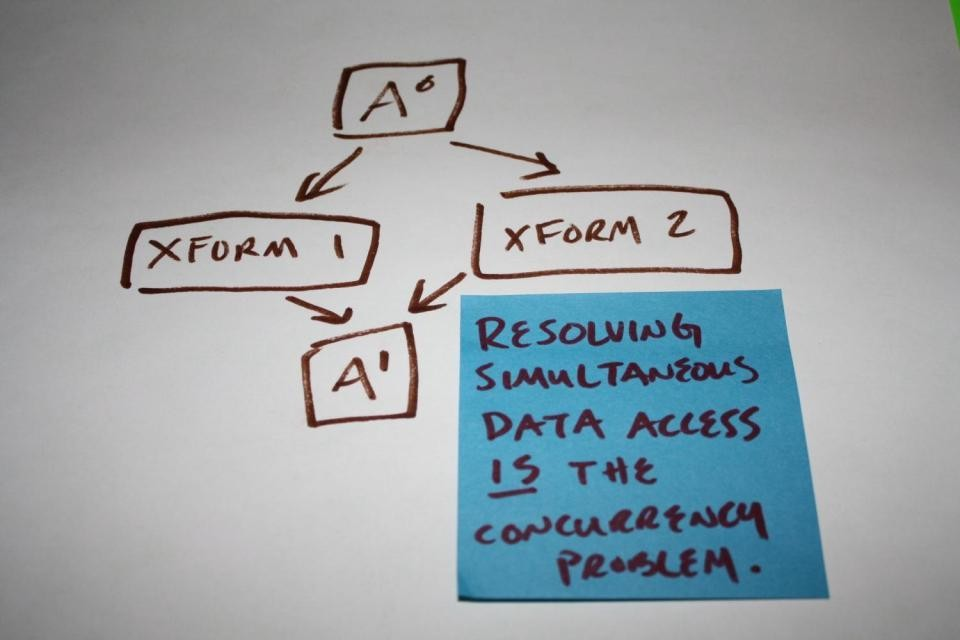 A⁰
XFORM 1
XFORM 2
A¹
RESOLVING
SIMULTANEOUS
DATA ACCESS
IS THE
CONCURRENCY
PROBLEM.